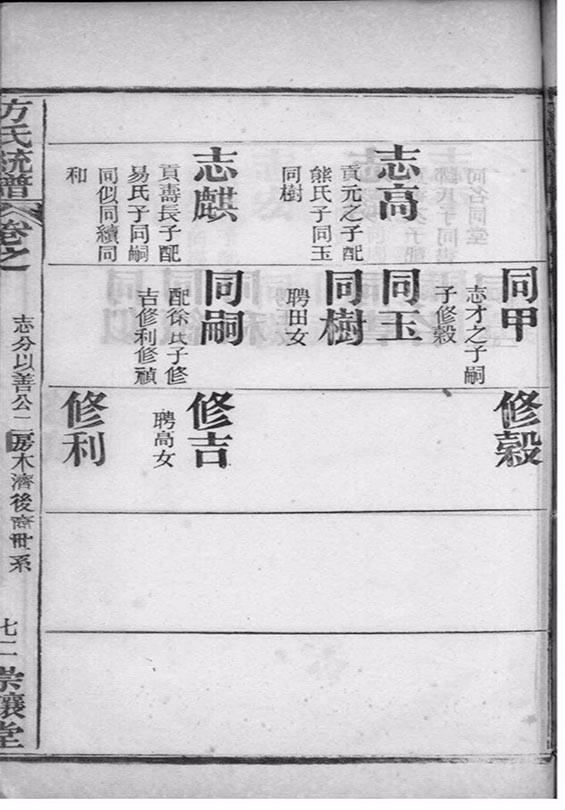 志高
貢元之子配
熊氏子同玉
同樹
志麒
貢壽長子配
易氏子同嗣
同似同續同
和
同甲
志才之子嗣
子修穀
同玉
同樹
聘田女
同嗣
配徐氏子修
吉修利修禎
修穀
修吉
聘高女
修利
方氏統譜
卷之
志分以善公二房木濟後裔世系
七二
崇讓堂